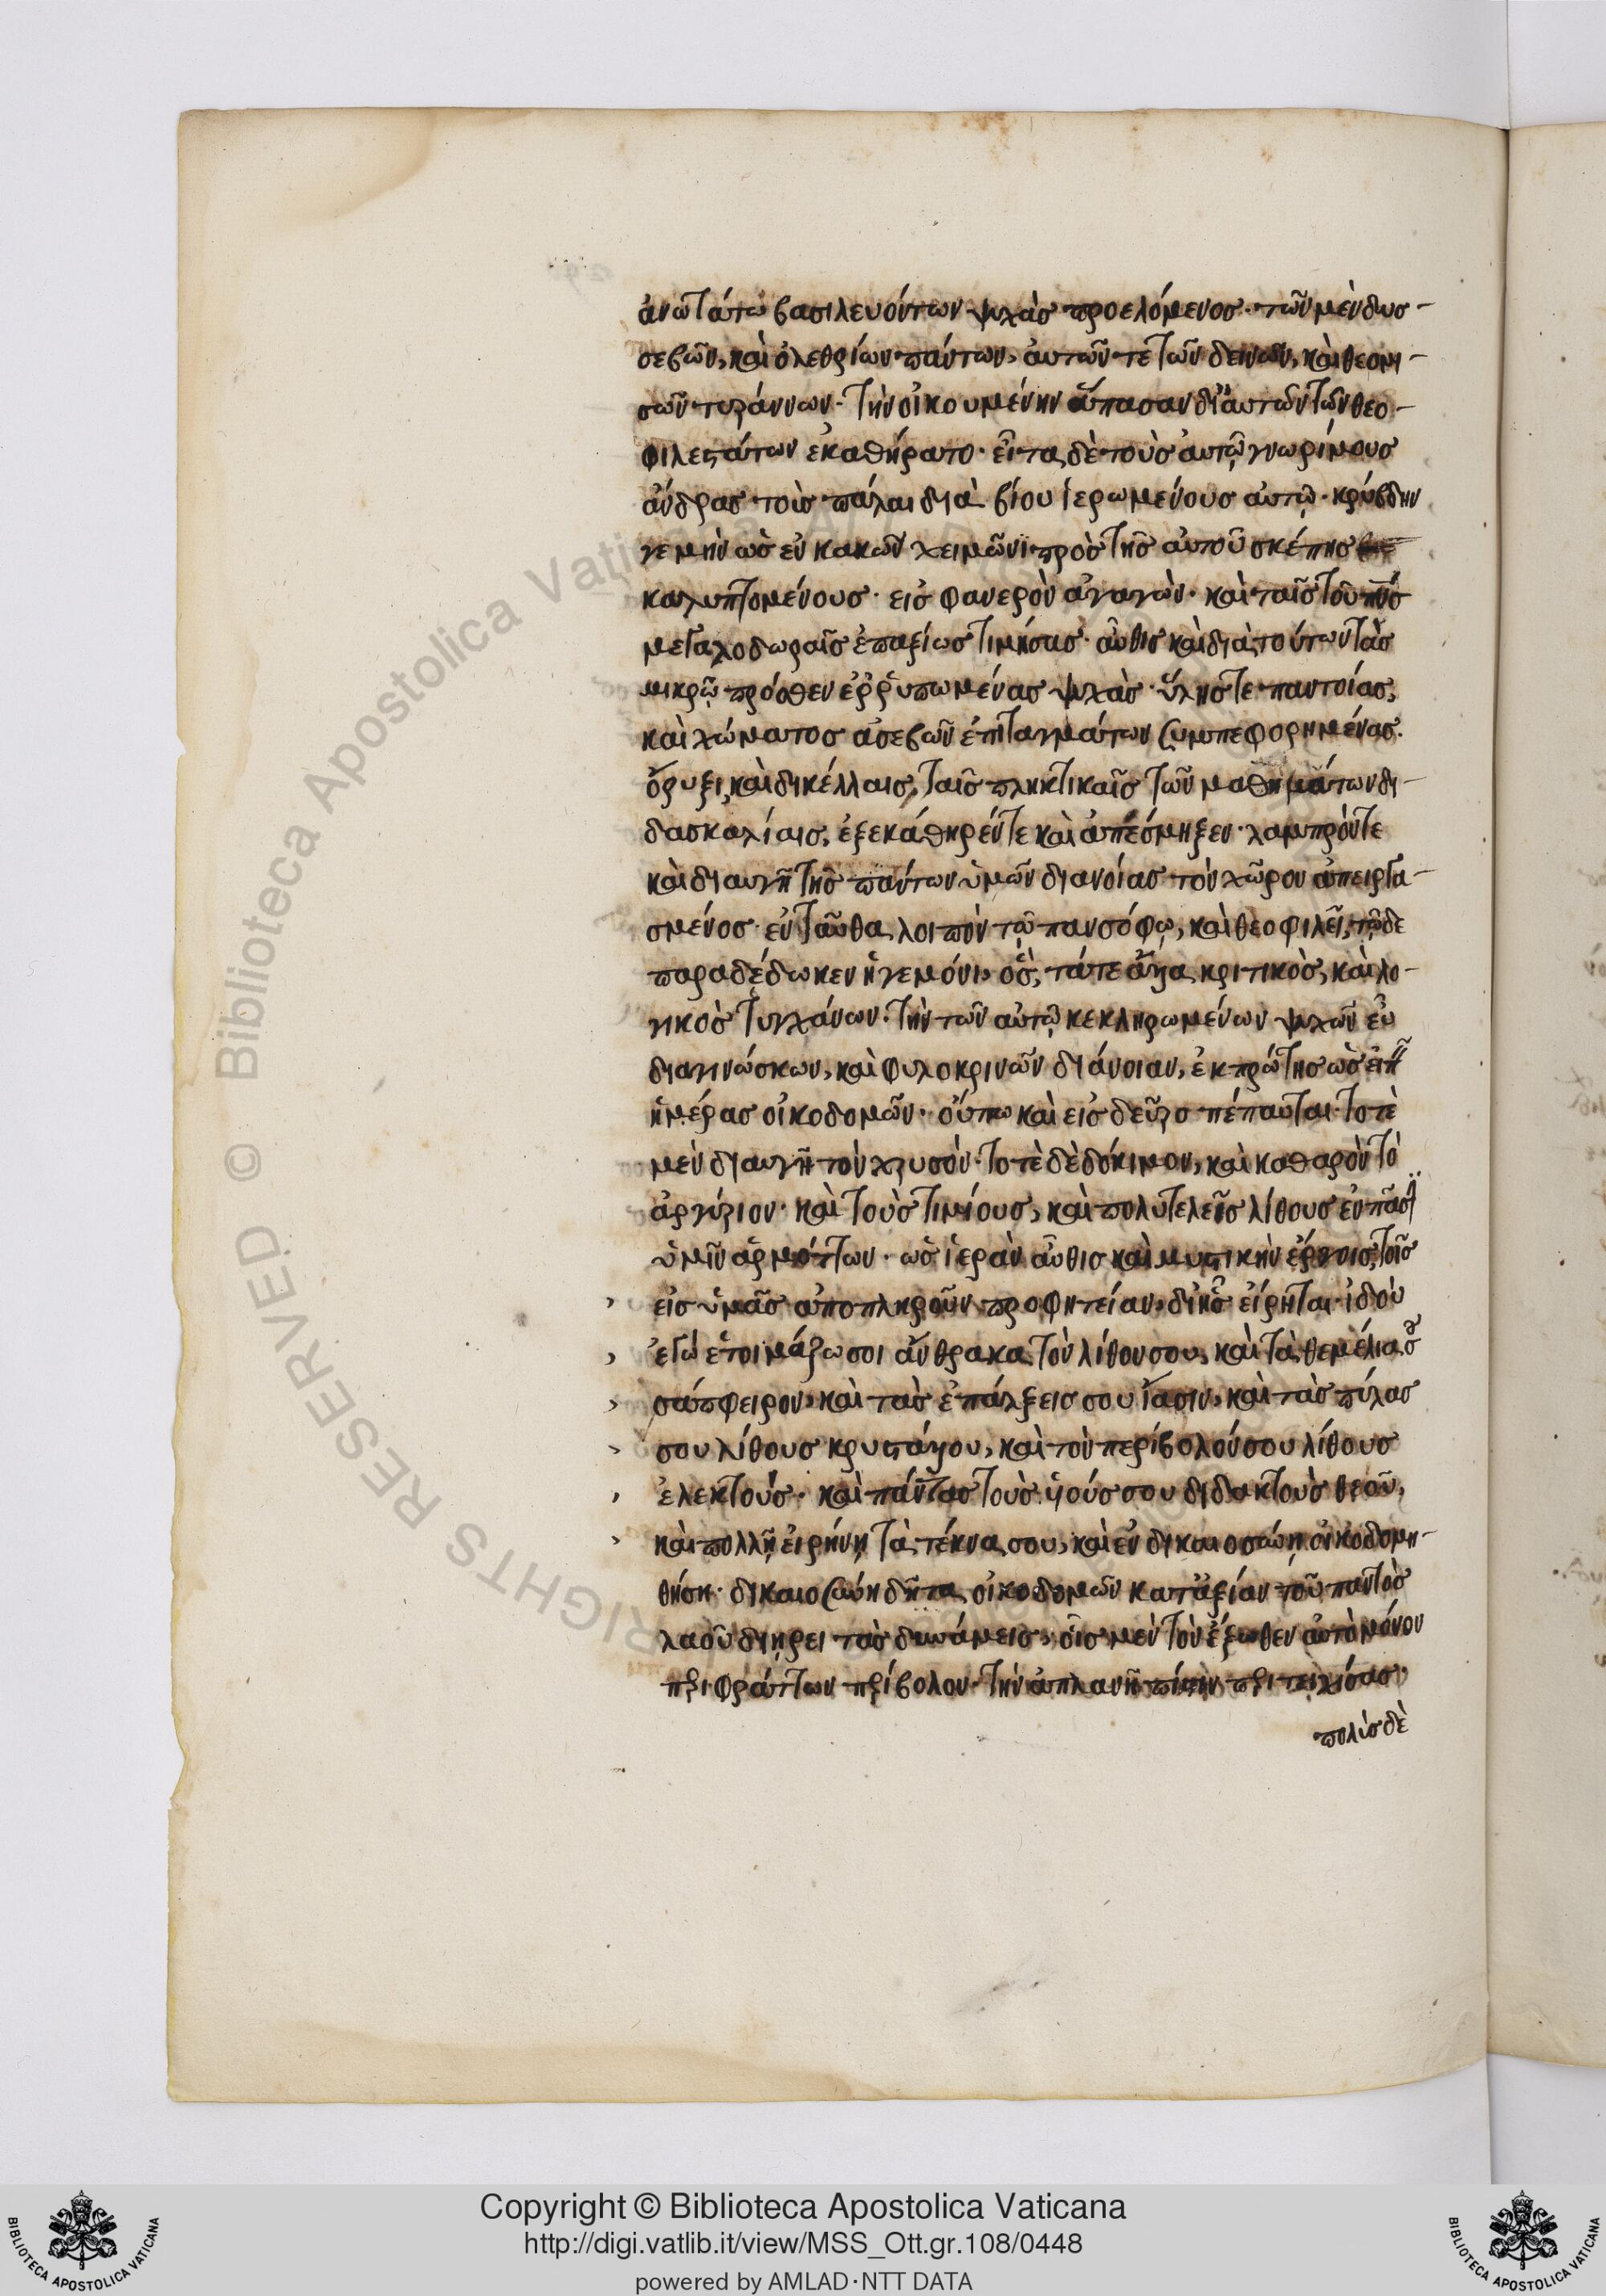 ἀνωτάτω βασιλευόντων ψυχὰς προελόμενος· τῶν μὲν δυσ-
σεβῶν, καὶ ὀλεθρίων πάντων, αὐτῶν τε τῶν δεινῶν, καὶ θεομι-
σῶν τυράννων· τὴν οἰκουμένην ἅπασαν δι' αὐτῶν τῶν θεο-
φιλεστάτων ἐκαθήρατο· εἶτα δὲ τοὺς αὐτῷ γνωρίμους
ἄνδρας τοὺς πάλαι διὰ βίου ἱερωμένους αὐτῷ· κρύβδην
γε μὴν ὡς ἐν κακῶν χειμῶνι πρὸς τῆς αὐτοῦ σκέπης
καλυπτομένους· εἰς φανερὸν ἀγαγὼν· καὶ ταῖς τοῦ πνς
μεγαλοδωραῖς ἐπαξίως τιμήσας· αὖθις καὶ διὰ τούτων τὰς
μικρῷ πρόσθεν ἐῤῥυπωμένας ψυχὰς· ὕλης τε παντοίας,
καὶ χώματος ἀσεβῶν ἐπιταγμάτων συμπεφορημένας·
ὄρυξι, καὶ δικέλλαις, ταῖς πληκτικαῖς τῶν μαθημάτων δι-
δασκαλίαις, ἐξεκάθηρέν τε καὶ ἀπέσμηξεν· λαμπρόν τε
καὶ διαυγῆ τῆς πάντων ὑμῶν διανοίας τὸν χῶρον ἀπειργα-
σμένος· ἐνταῦθα λοιπὸν τῷ πανσόφῳ, καὶ θεοφιλεῖ, τῷδε
παραδέδωκεν ἡγεμόνι, ὃς, τά τε ἄλλα κριτικὸς, καὶ λο-
γικὸς τυγχάνων· τὴν τῶν αὐτῷ κεκληρωμένων ψυχῶν εὖ
διαγινώσκων, καὶ φυλοκρινῶν διάνοιαν, ἐκ πρώτης ὡς εἰπ
ἡμέρας οἰκοδομῶν· οὔπω καὶ εἰς δεῦρο πέπαυται· τοτὲ
μὲν διαυγῆ τὸν χρυσόν· τοτὲ δὲ δόκιμον, καὶ καθαρὸν τὸ
ἀργύριον· καὶ τοὺς τιμίους, καὶ πολυτελεῖς λίθους ἐν πᾶσι
ὑμῖν ἁρμόττων· ὡς ἱερὰν αὖθις καὶ μυστικὴν ἔργοις τοῖς
› εἰς ὑμᾶς ἀποπληροῦν προφητείαν, δι' ἧς εἴρηται· ἰδοὺ
› ἐγὼ ἑτοιμάζω σοι ἄνθρακα τὸν λίθον σου, καὶ τὰ θεμέλιά σ
› σάπφειρον, καὶ τὰς ἐπάλξεις σου ἴασιν, καὶ τὰς πύλας
› σου λίθους κρυστάλλου, καὶ τὸν περίβολόν σου λίθους
› ἐλεκτούς· καὶ πάντας τοὺς υἱούς σου διδακτοὺς θεοῦ,
› καὶ πολλῇ εἰρήνῃ τὰ τέκνα σου, καὶ ἐν δικαιοσύνῃ οἰκοδομη-
θήσῃ· δικαιοσύνῃ δῆτα οἰκοδομῶν κατ' ἀξίαν τοῦ παντὸς
λαοῦ διῄρει τὰς δυνάμεις· οἷς μὲν τὸν ἔξωθεν αὐτὸ μόνον
περιφράττων περίβολον· τὴν ἀπλανῆ πίστιν περιτειχίσας·
πολὺς δὲ
Copyright © Biblioteca Apostolica Vaticana
http://digi.vatlib.it/view/MSS_Ott.gr.108/0448
powered by AMLAD·NTT DATA